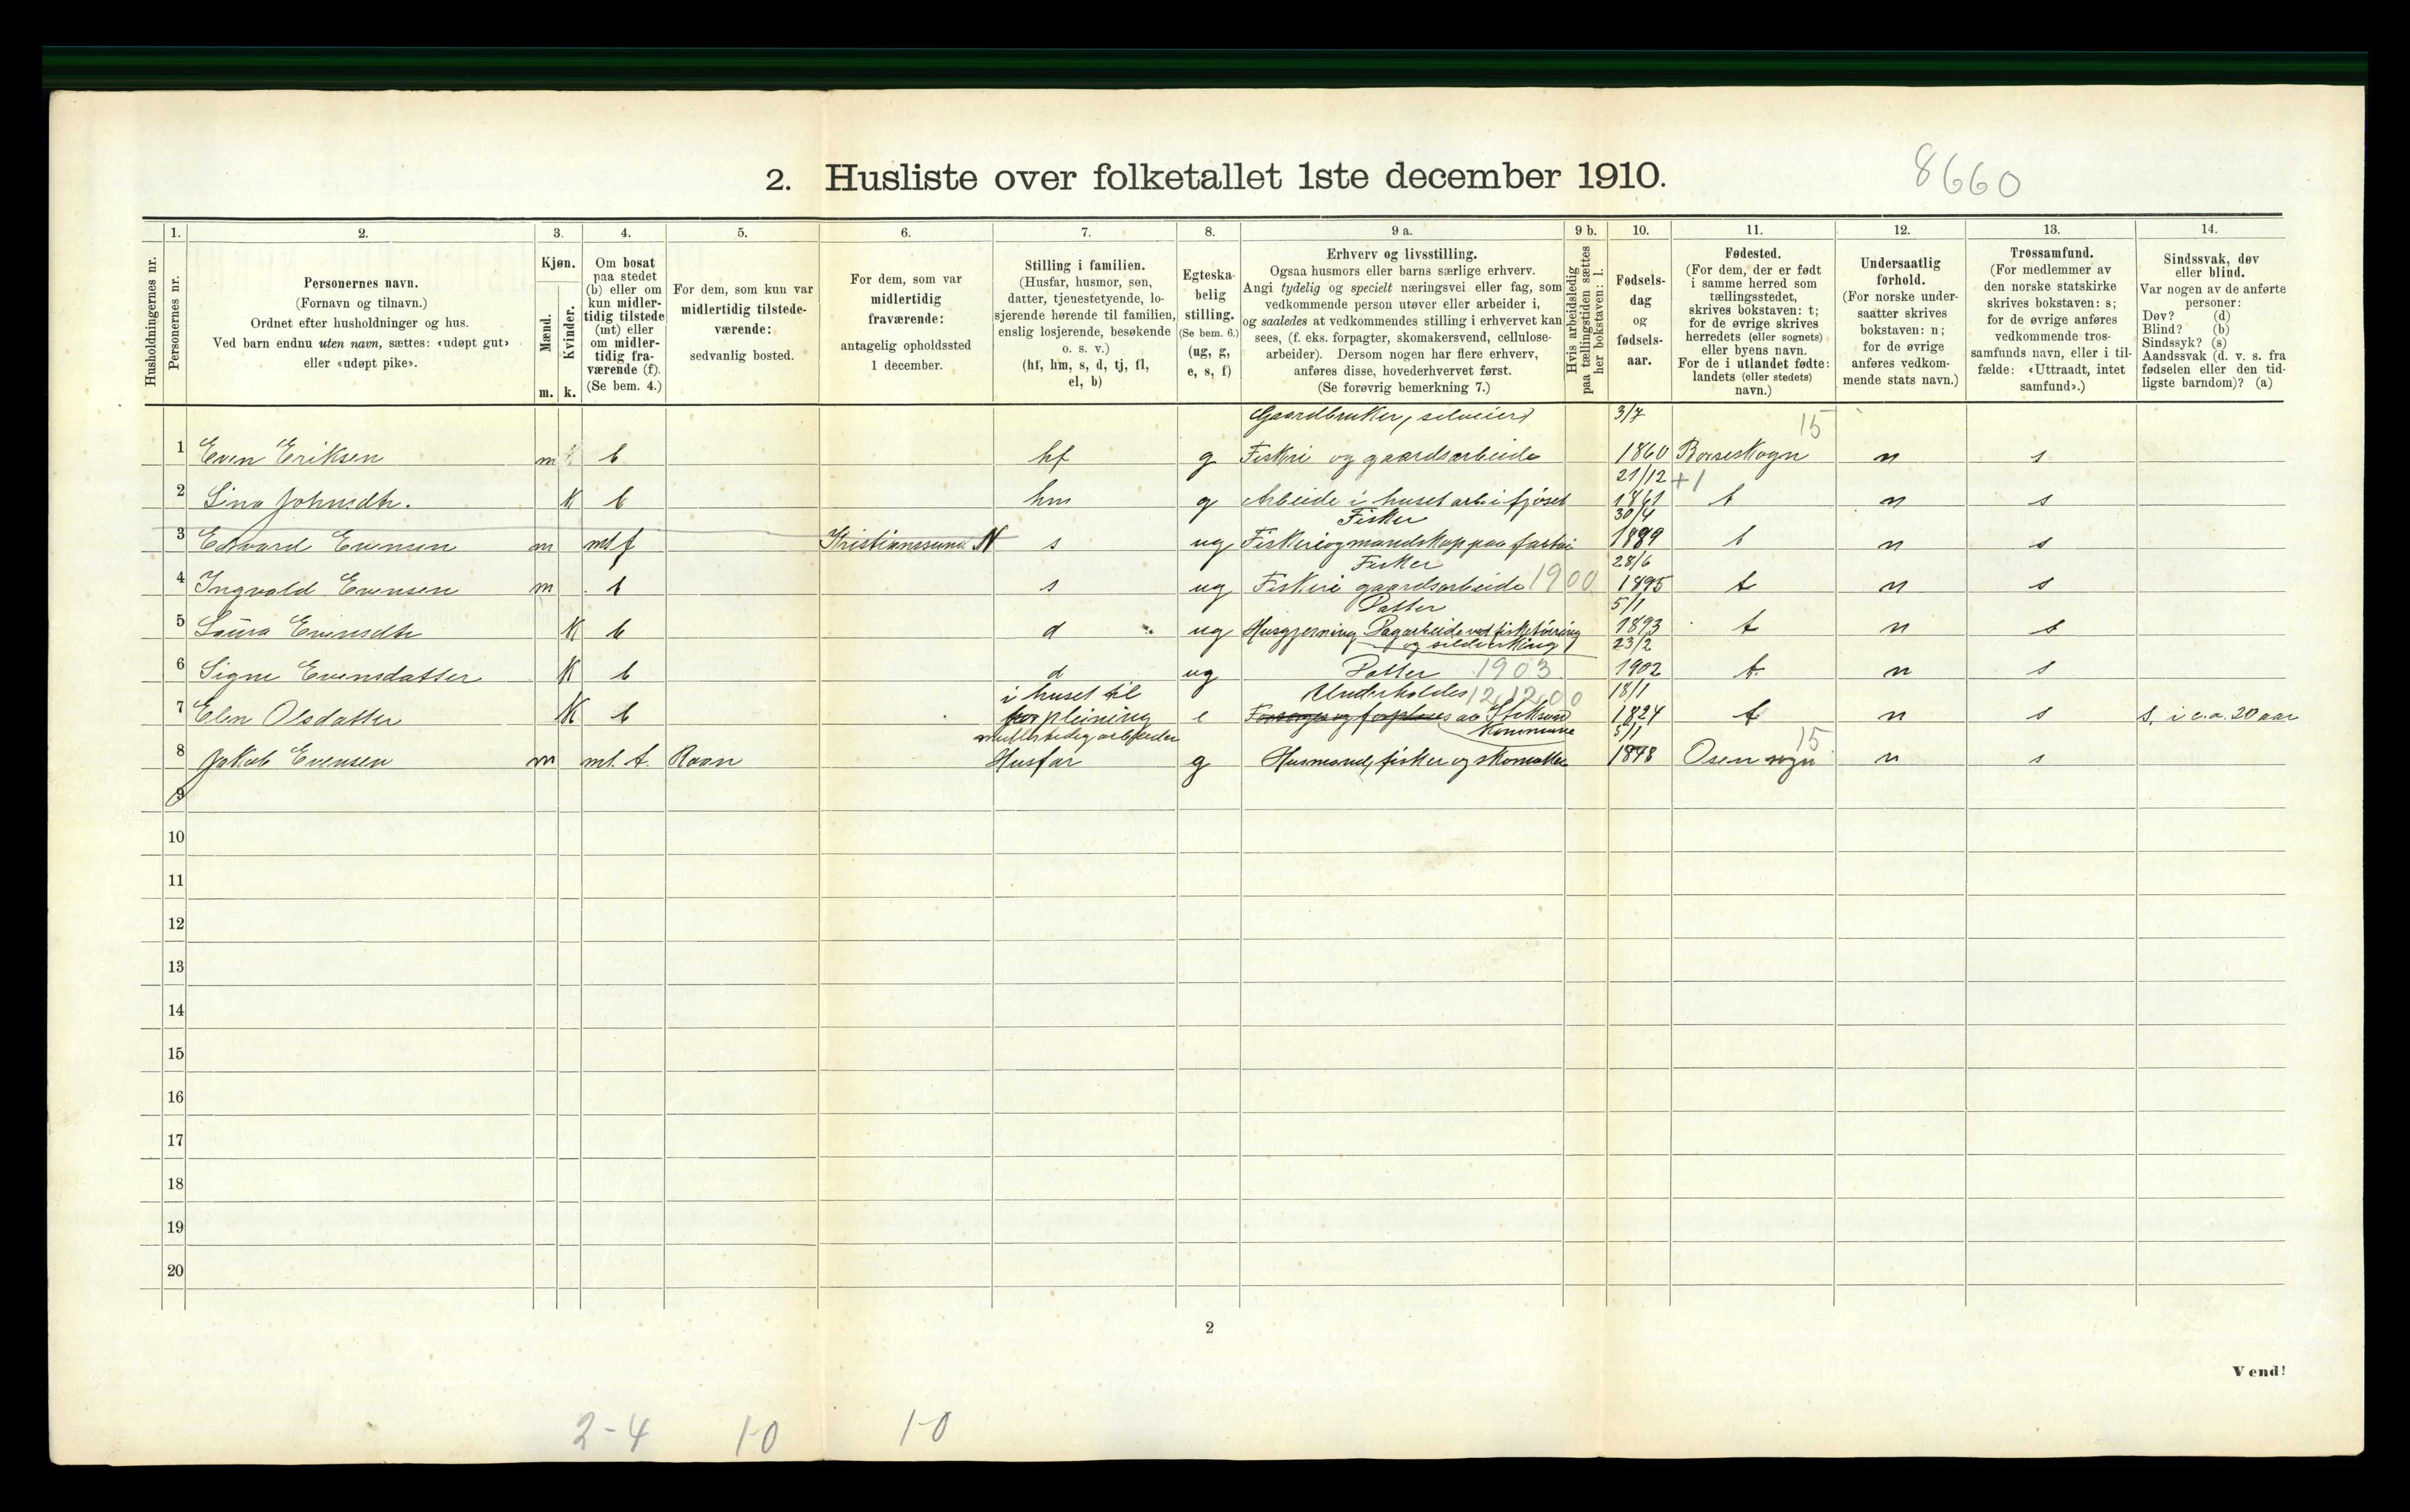 2. Husliste over folketallet 1ste december 1910.
8660
Husholdningernes nr.
1. Personernes nr.
2. Personernes navn.
(Fornavn og tilnavn.)
Ordnet efter husholdninger og hus.
Ved barn endnu uten navn, sættes: «udøpt gut»
eller «udøpt pike».
3. Kjøn.
Mænd. Kvinder.
m. k.
4. Om bosat
paa stedet
(b) eller om
kun midler-
tidig tilstede
(mt) eller
om midler-
tidig fra-
værende (f).
(Se bem. 4.)
5. For dem, som kun var
midlertidig tilstede-
værende:
sedvanlig bosted.
6. For dem, som var
midlertidig
fraværende:
antagelig opholdssted
1 december.
7. Stilling i familien.
(Husfar, husmor, søn,
datter, tjenestetyende, lo-
sjerende hørende til familien,
enslig losjerende, besøkende
o. s. v.)
(hf, hm, s, d, tj, fl,
el, b)
8. Egteska-
belig
stilling.
(Se bem. 6.)
(ug, g,
e, s, f)
9 a. Erhverv og livsstilling.
Ogsaa husmors eller barns særlige erhverv.
Angi tydelig og specielt næringsvei eller fag, som
vedkommende person utøver eller arbeider i,
og saaledes at vedkommendes stilling i erhvervet kan
sees, (f. eks. forpagter, skomakersvend, cellulose-
arbeider). Dersom nogen har flere erhverv,
anføres disse, hovederhvervet først.
(Se forøvrig bemerkning 7.)
9 b. Hvis arbeidsledig
paa tællingstiden sættes
her bokstaven: l.
10. Fødsels-
dag
og
fødsels-
aar.
11. Fødested.
(For dem, der er født
i samme herred som
tællingsstedet,
skrives bokstaven: t;
for de øvrige skrives
herredets (eller sognets)
eller byens navn.
For de i utlandet fødte:
landets (eller stedets)
navn.)
12. Undersaatlig
forhold.
(For norske under-
saatter skrives
bokstaven: n;
for de øvrige
anføres vedkom-
mende stats navn.)
13. Trossamfund.
(For medlemmer av
den norske statskirke
skrives bokstaven: s;
for de øvrige anføres
vedkommende tros-
samfunds navn, eller i til-
fælde: «Uttraadt, intet
samfund».)
14. Sindssvak, døv
eller blind.
Var nogen av de anførte
personer:
Døv? (d)
Blind? (b)
Sindssyk? (s)
Aandssvak (d. v. s. fra
fødselen eller den tid-
ligste barndom)? (a)
Gaardbruker, selveier 3/7 15
1 Even Eriksen m b hf g Fiskeri og gaardsarbeide 1860 Børseskogn n s
21/12 +1
2 Lina Johnsdtr. K b hm g Arbeide i huset arb. i fjøset 1861 t n s
Fisker 30/4
3 Edvard Evensen m mt f Kristianssund N s ug Fiskeri og mandskap paa fartøi 1889 t n s
Fisker 28/6
4 Ingvald Evensen m b s ug Fiskeri gaardsarbeide 1900 1895 t n s
Datter 5/1
5 Laura Evensdtr K b d ug Husgjerning Dagarbeide ved fisketørring 1893 t n s
og sildvirking 23/2
6 Signe Evensdatter K b d ug Datter 1903 1902 t n s
i huset til Underholdes 12.12.00 18/1
7 Elen Olsdatter K b forpleining e Forsørges og forpleies av Stoksund 1824 t n s s, i c.a. 20 aar
midlertidig arbeider Kommune 5/1 15
8 Jakob Evensen m mt. t. Raan Husfar g Husmand, fisker og skomaker 1878 Osen sogn n s
9
10
11
12
13
14
15
16
17
18
19
20
2
Vend!
2-4 1-0 1-0